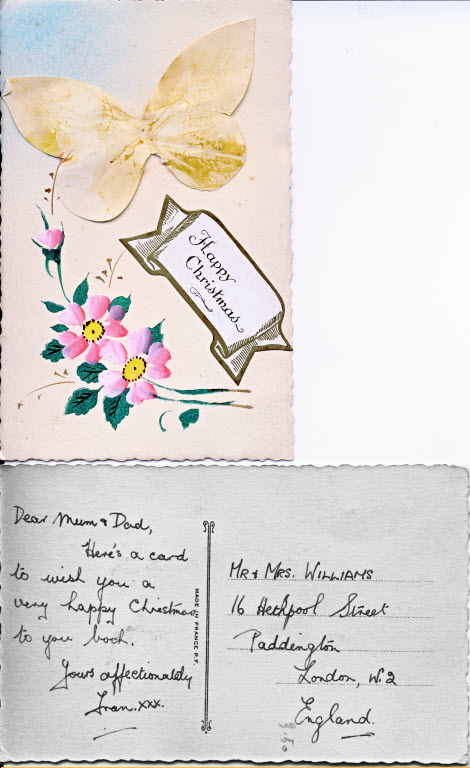 Happy
Christmas
Dear Mum & Dad,
Here's a card
to wish you a
very happy Christmas
to you both.
Yours affectionately
Fran. xxx.
MADE IN FRANCE P.F.
Mr & Mrs. WILLIAMS
16 Hethpool Street
Paddington
London, W.2
England.